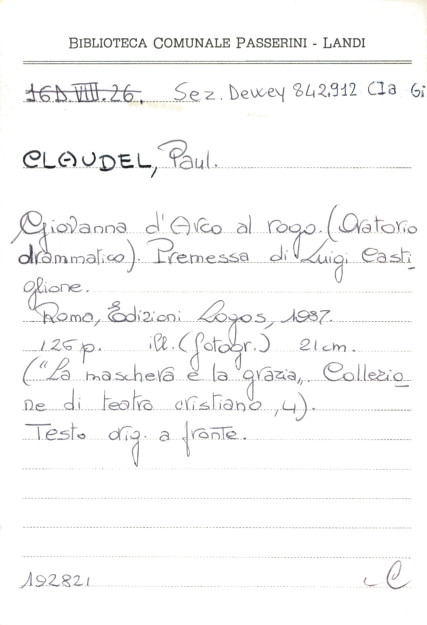 BIBLIOTECA COMUNALE PASSERINI - LANDI
16D.VIII.26. Sez. Dewey 842.912 Cla Gi
CLAUDEL, Paul.
Giovanna d'Arco al rogo. (Oratorio
drammatico). Premessa di Luigi Casti
glione.
Roma, Edizioni Logos, 1987.
125 p. ill. (fotogr.) 21 cm.
("La maschera e la grazia„. Collezio
ne di teatro cristiano, 4).
Testo orig. a fronte.
192821 C